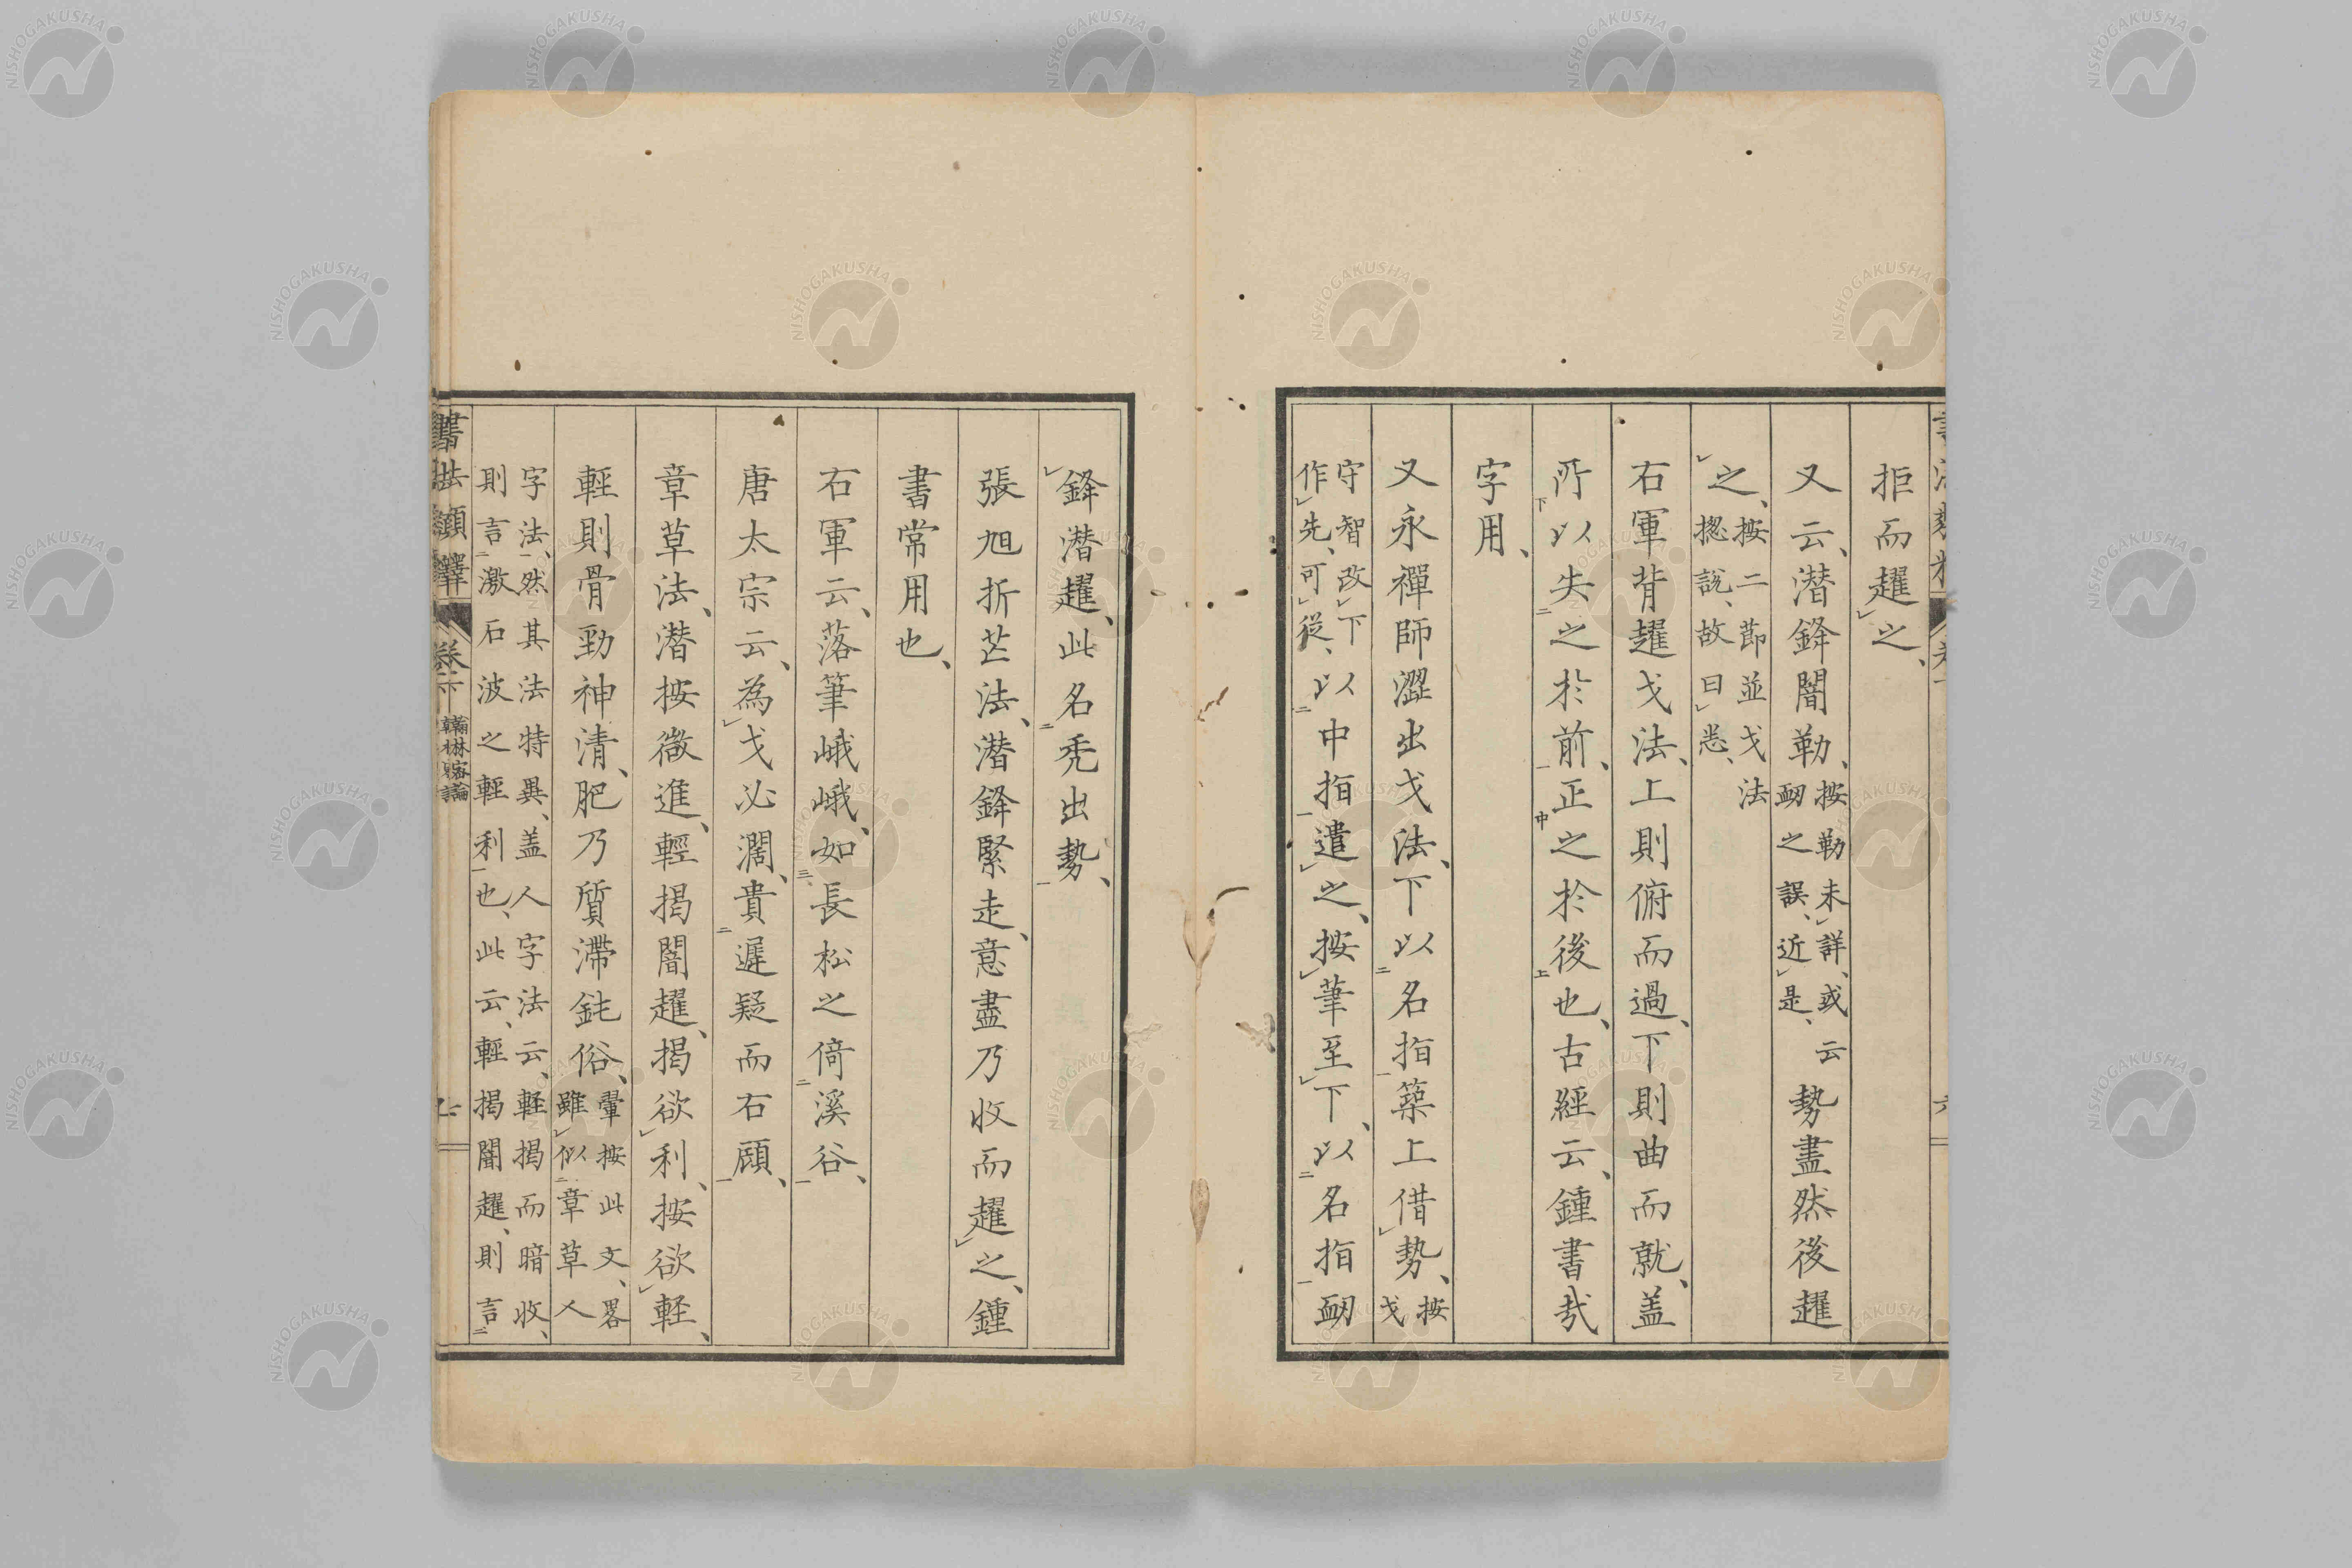 拒而趯之、
又云、潜鋒闇勒、按勒未詳、或云衂之誤、近是、勢盡然後趯
之、按二節並戈法揔說、故曰悉、
右軍背趯戈法、上則俯而過、下則曲而就、盖
所以失之於前、正之於後也、古經云、鍾書㢤
字用、
又永禪師澀出戈法、下以名指築上借勢、按戈
守智改下以中指遣之、按筆至下、以名指衂
作先、可從、
鋒潜趯、此名禿出勢、
張旭折芒法、潜鋒緊走、意盡乃收而趯之、鍾
書常用也、
右軍云、落筆峨峨、如長松之倚溪谷、
唐太宗云、為戈必濶、貴遲疑而右顧、
章草法、潜按微進、輕揭闇趯、揭欲利、按欲輕、
輕則骨勁神清、肥乃質滯鈍俗、暈按此文、畧雖似章草人
字法、然其法特異、盖人字法云、輕揭而暗收、
則言激石波之輕利也、此云、輕揭闇趯、則言
書法類釋 卷下 翰林密論 七
NISHOGAKUSHA